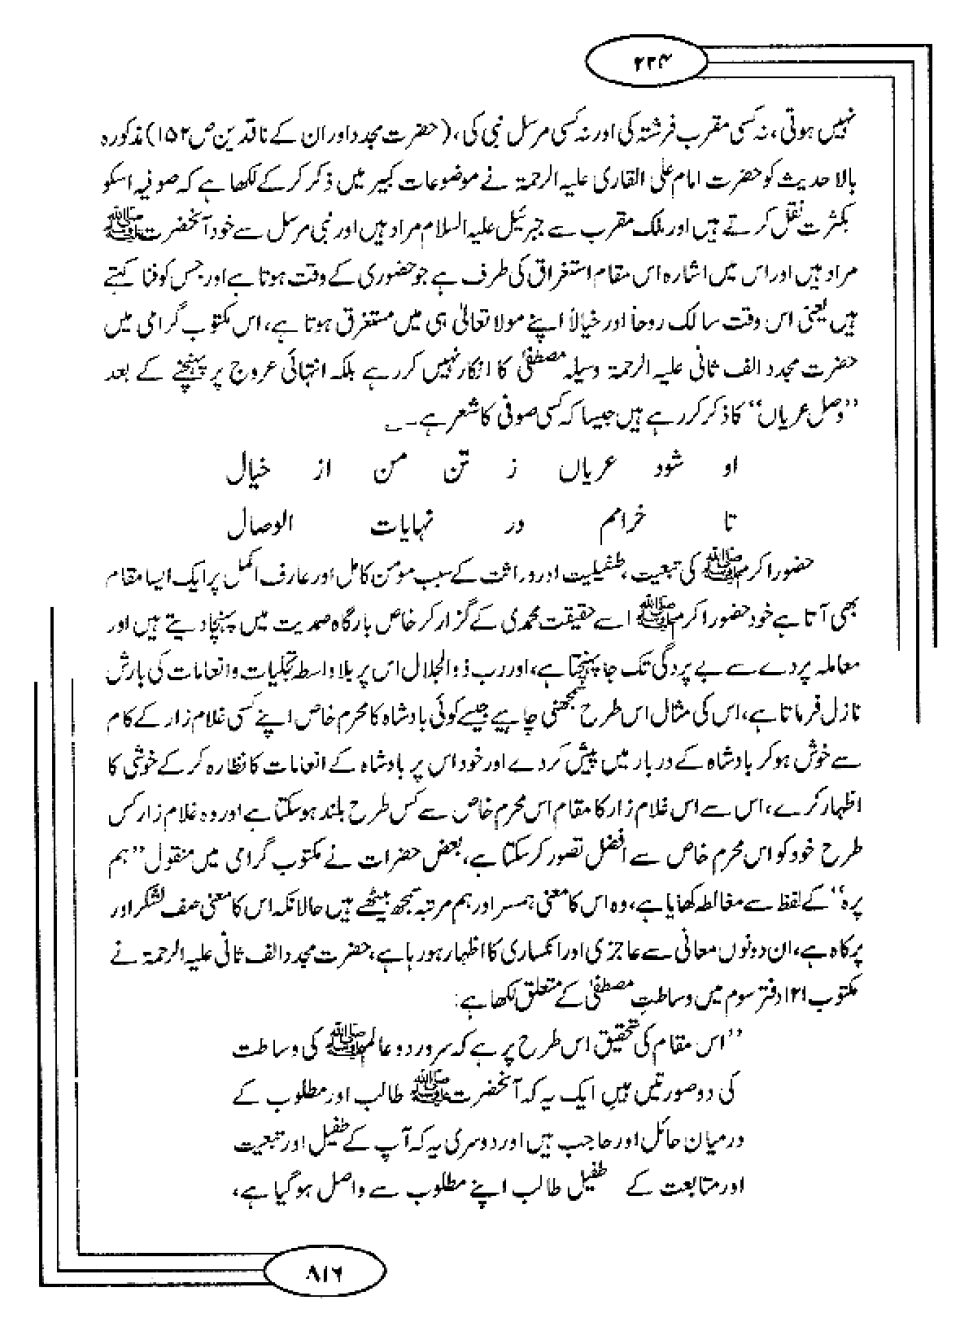 ۲۳۴
نہیں ہوتی، نہ کسی مقرب فرشتہ کی اور نہ کسی مرسل نبی کی، (حضرت مجدد اور ان کے ناقدین ص ۱۵۲) مذکورہ
بالا حدیث کو حضرت امام علی القاری علیہ الرحمۃ نے موضوعات کبیر میں ذکر کر کے لکھا ہے کہ صوفیہ اسکو
بکثرت نقل کرتے ہیں اور ملک مقرب سے جبرئیل علیہ السلام مراد ہیں اور نبی مرسل سے خود آنحضرت ﷺ
مراد ہیں اور اس میں اشارہ اس مقام استغراق کی طرف ہے جو حضوری کے وقت ہوتا ہے اور جس کو فنا کہتے
ہیں یعنی اس وقت سالک روحاً اور خیالاً اپنے مولا تعالیٰ ہی میں مستغرق ہوتا ہے، اس مکتوب گرامی میں
حضرت مجدد الف ثانی علیہ الرحمۃ وسیلہ مصطفیٰ کا انکار نہیں کر رہے بلکہ انتہائی عروج پر پہنچنے کے بعد
”وصل عریاں“ کا ذکر کر رہے ہیں جیسا کہ کسی صوفی کا شعر ہے۔
او شود عریاں ز تن من از خیال
تا خرامم در نہایات الوصال
حضور اکرم ﷺ کی تبعیت، طفیلیت اور وراثت کے سبب مومن کامل اور عارف اکمل پر ایک ایسا مقام
بھی آتا ہے خود حضور اکرم ﷺ اسے حقیقت محمدی کے گزار کر خاص بارگاہ صمدیت میں پہنچا دیتے ہیں اور
معاملہ پردے سے بے پردگی تک جا پہنچتا ہے، اور رب ذوالجلال اس پر بلا واسطہ تجلیات و انعامات کی بارش
نازل فرماتا ہے، اس کی مثال اس طرح سمجھنی چاہیے جیسے کوئی بادشاہ کا محرم خاص اپنے کسی غلام زار کے کام
سے خوش ہو کر بادشاہ کے دربار میں پیش کر دے اور خود اس پر بادشاہ کے انعامات کا نظارہ کر کے خوشی کا
اظہار کرے، اس سے اس غلام زار کا مقام اس محرم خاص سے کس طرح بلند ہو سکتا ہے اور وہ غلام زار کس
طرح خود کو اس محرم خاص سے افضل تصور کر سکتا ہے، بعض حضرات نے مکتوب گرامی میں منقول ”ہم
پرہ“ کے لفظ سے مغالطہ کھایا ہے، وہ اس کا معنی ہمسر اور ہم مرتبہ سمجھ بیٹھے ہیں حالانکہ اس کا معنی صف لشکر اور
پرکاہ ہے، ان دونوں معانی سے عاجزی اور انکساری کا اظہار ہو رہا ہے، حضرت مجدد الف ثانی علیہ الرحمۃ نے
مکتوب ۱۲۱ دفتر سوم میں وساطتِ مصطفیٰ کے متعلق لکھا ہے:
”اس مقام کی تحقیق اس طرح پر ہے کہ سرور دو عالم ﷺ کی وساطت
کی دو صورتیں ہیں ایک یہ کہ آنحضرت ﷺ طالب اور مطلوب کے
درمیان حائل اور حاجب ہیں اور دوسری یہ کہ آپ کے طفیل اور تبعیت
اور متابعت کے طفیل طالب اپنے مطلوب سے واصل ہو گیا ہے،
۸۱۶